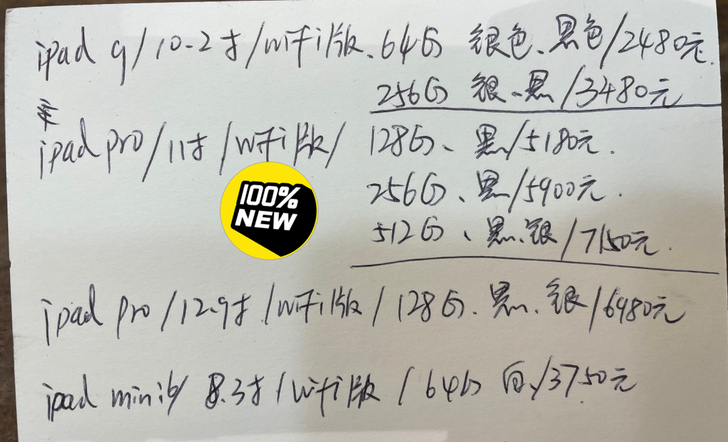 ipad 9/10.2寸/wifi版、64G 银色、黑色/2480元
256G 银、黑/3480元
ipad pro/11寸/wifi版/ 128G、黑/5180元.
256G、黑/5900元.
512G、黑、银/7150元.
100%
NEW
ipad pro/12.9寸/wifi版/128G.黑、银/6980元
ipad mini6/8.3寸/wifi版/64G 白/3750元